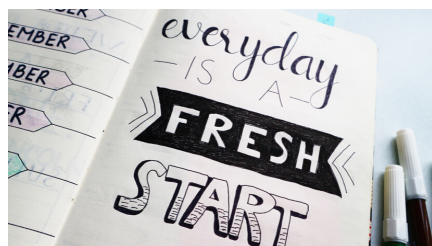 EMBER
EMBER
BER
ER
everyday
IS A
FRESH
START